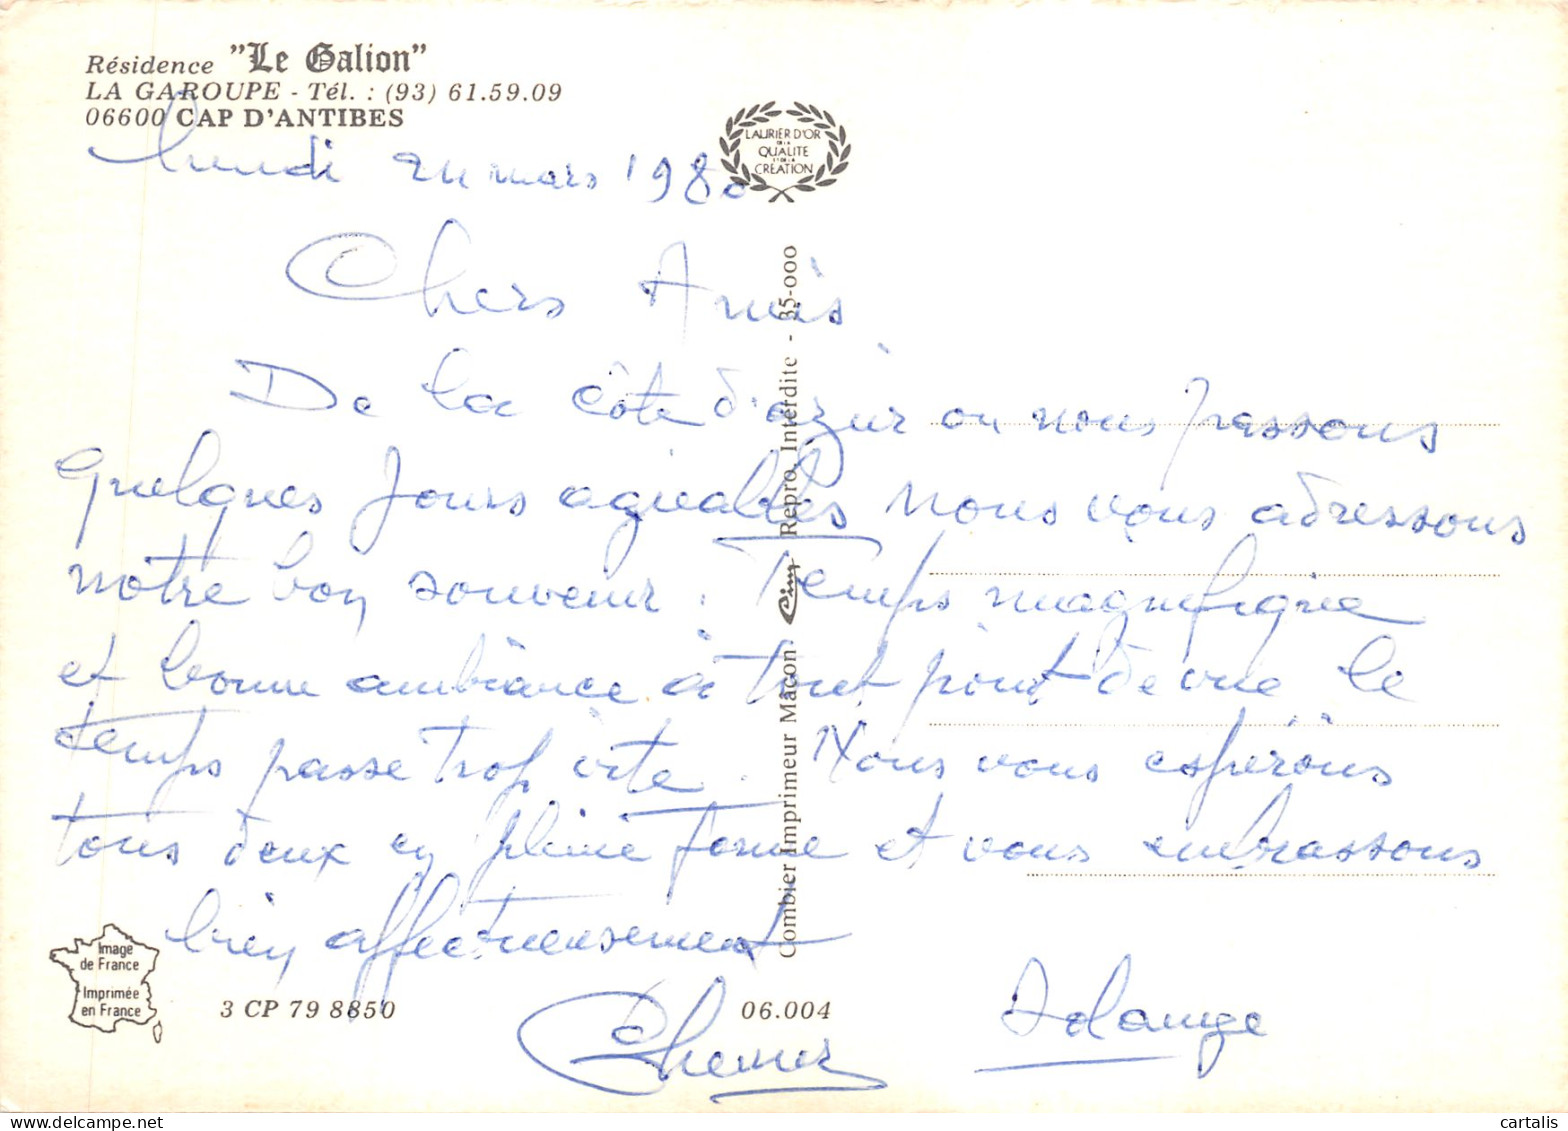 Résidence "Le Galion"
LA GAROUPE - Tél. : (93) 61.59.09
06600 CAP D'ANTIBES
LAURIER D'OR
DE LA
QUALITE
ET DE LA
CREATION
lundi 24 mars 1980
Chers Amis
De la côte d'azur ou nous passons
quelques jours agreables nous vous adressons
notre bon souvenir. Temps magnifique
et bonne ambiance à tout point de vue le
temps passe trop vite. Nous vous espérons
tous deux en pleine forme et vous embrassons
bien affectueusement
Solange
Combier Imprimeur Mâcon Cim Repro. Interdite - 35-000
Image
de France
Imprimée
en France
3 CP 79 8850
06.004
cartalis